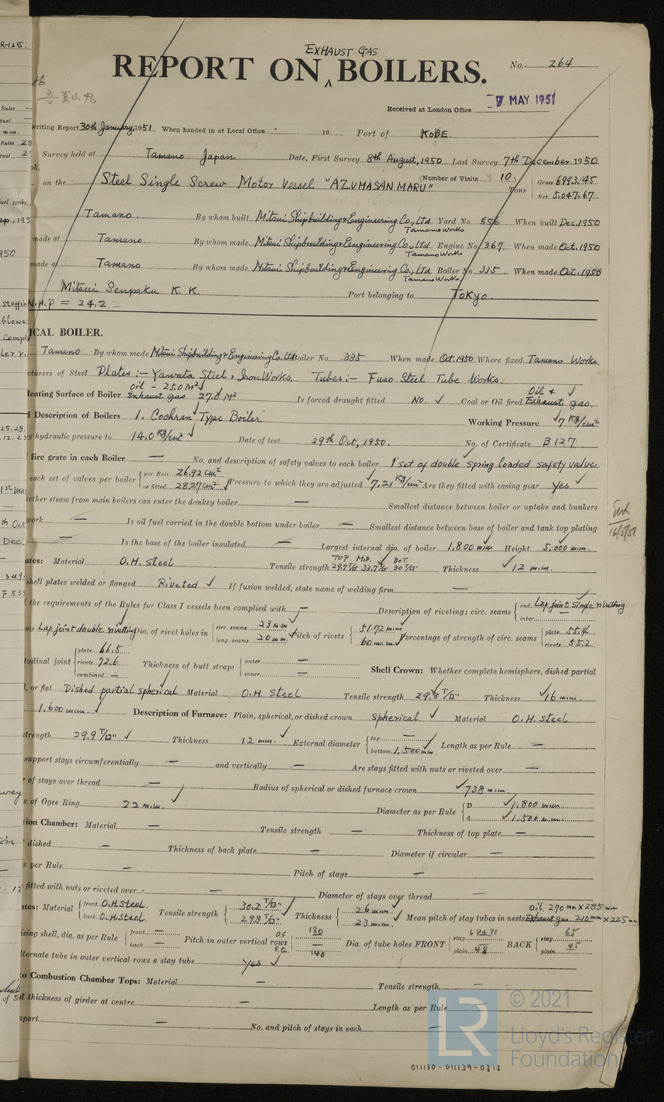 EXHAUST GAS
REPORT ON ^ BOILERS.
No. 264
Received at London Office 7 MAY 1951
writing Report 30th January, 1951 When handed in at Local Office 19 Port of KOBE
Survey held at Tamano Japan Date, First Survey 8th August, 1950 Last Survey 7th December 1950
on the Steel Single Screw Motor Vessel "AZUMASAN MARU" (Number of Visits 10) Tons Gross 6993.45 Net 5,047.67
Tamano. By whom built Mitsui Shipbuilding & Engineering Co., Ltd Tamano Works Yard No. 556 When built Dec. 1950
made at Tamano By whom made Mitsui Shipbuilding & Engineering Co., Ltd Tamano Works Engine No. 367 When made Oct. 1950
made at Tamano By whom made Mitsui Shipbuilding & Engineering Co., Ltd Tamano Works Boiler No. 335 When made Oct. 1950
Mitsui Senpaku K.K. Port belonging to Tokyo
N.H.P = 242
ICAL BOILER.
Tamano By whom made Mitsui Shipbuilding & Engineering Co. Ltd Boiler No. 335 When made Oct. 1950 Where fixed Tamano Works
cturers of Steel Plates :- Yawata Steel & Iron Works. Tubes :- Fuso Steel Tube Works.
Heating Surface of Boiler oil - 25.0 M² Exhaust gas 27.0 M² Is forced draught fitted No. Coal or Oil fired Oil & Exhaust gas.
Description of Boilers 1. Cochran Type Boiler Working Pressure 7 KG/cm²
hydraulic pressure to 14.0 KG/cm² Date of test 29th Oct, 1950. No. of Certificate B 127
fire grate in each Boiler — No. and description of safety valves to each boiler 1 set of double spring loaded safety valve
each set of valves per boiler per Rule 26.92 cm² as fitted 28.27 cm² Pressure to which they are adjusted 7.21 KG/cm² Are they fitted with easing gear Yes
ether steam from main boilers can enter the donkey boiler — Smallest distance between boiler or uptake and bunkers
work — Is oil fuel carried in the double bottom under boiler — Smallest distance between base of boiler and tank top plating
— Is the base of the boiler insulated — Largest internal dia. of boiler 1,800 mm Height 5,000 mm.
ates: Material O.H. Steel Tensile strength TOP MID. BOT. Thickness 12 mm.
shell plates welded or flanged Riveted If fusion welded, state name of welding firm —
the requirements of the Rules for Class I vessels been complied with — Description of riveting: circ. seams end. Lap joint single rivetting inter. —
Lap joint double rivetting Dia. of rivet holes in circ. seams 23 mm long. seams 20 mm Pitch of rivets 51.72 mm 60 mm Percentage of strength of circ. seams plate 55.4 rivets 55.2
tudinal joint plate 66.5 rivets 72.6 combined — Thickness of butt straps outer — inner — Shell Crown: Whether complete hemisphere, dished partial
or flat Dished partial spherical Material O.H. Steel Tensile strength Thickness 16 mm.
1,600 mm. Description of Furnace: Plain, spherical, or dished crown Spherical Material O.H. Steel
trength 29.9 T/□" Thickness 12 mm. External diameter top — bottom 1,500 mm Length as per Rule —
support stays circumferentially — and vertically — Are stays fitted with nuts or riveted over —
of stays over thread — Radius of spherical or dished furnace crown 738 mm.
of Ogee Ring 22 mm Diameter as per Rule D 1,800 mm d 1,500 mm
tion Chamber: Material — Tensile strength — Thickness of top plate —
dished — Thickness of back plate — Diameter if circular —
per Rule — Pitch of stays —
fitted with nuts or riveted over — Diameter of stays over thread —
ates: Material front O.H. Steel back O.H. Steel Tensile strength 30.2 T/□" 29.8 T/□" Thickness 26 mm 23 mm Mean pitch of stay tubes in nests Oil, 270 mm x 285 mm Exhaust gas 210 mm x 225 mm
cing shell, dia. as per Rule front — back — Pitch in outer vertical rows O.F. 180 E.G. 140 Dia. of tube holes FRONT stay 68 & 71 plain 48 BACK stay 65 plain 45
lternate tube in outer vertical rows a stay tube Yes
to Combustion Chamber Tops: Material — Tensile strength —
d thickness of girder at centre — Length as per Rule —
apart — No. and pitch of stays in each —
LR
© 2021
Lloyd's Register
Foundation
011130 - 011139 - 0313